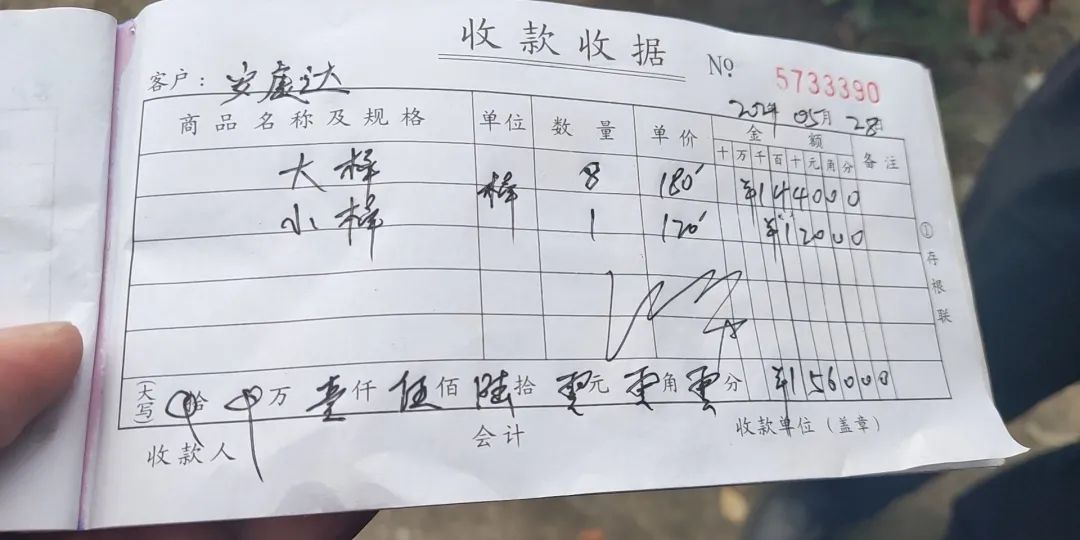 收款收据 № 5733390
客户：安康达 2024年05月28日
商品名称及规格 单位 数量 单价 金额 备注
十万千百十元角分
大桦 桦 8 180 ¥144000
小桦 1 120 ¥12000
①存根联
(大写) 拾 万 壹仟 伍佰 陆拾 零元 零角 零分 ¥156000
收款人 会计 收款单位（盖章）